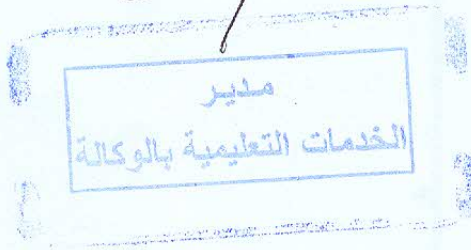 مدير
الخدمات التعليمية بالوكالة